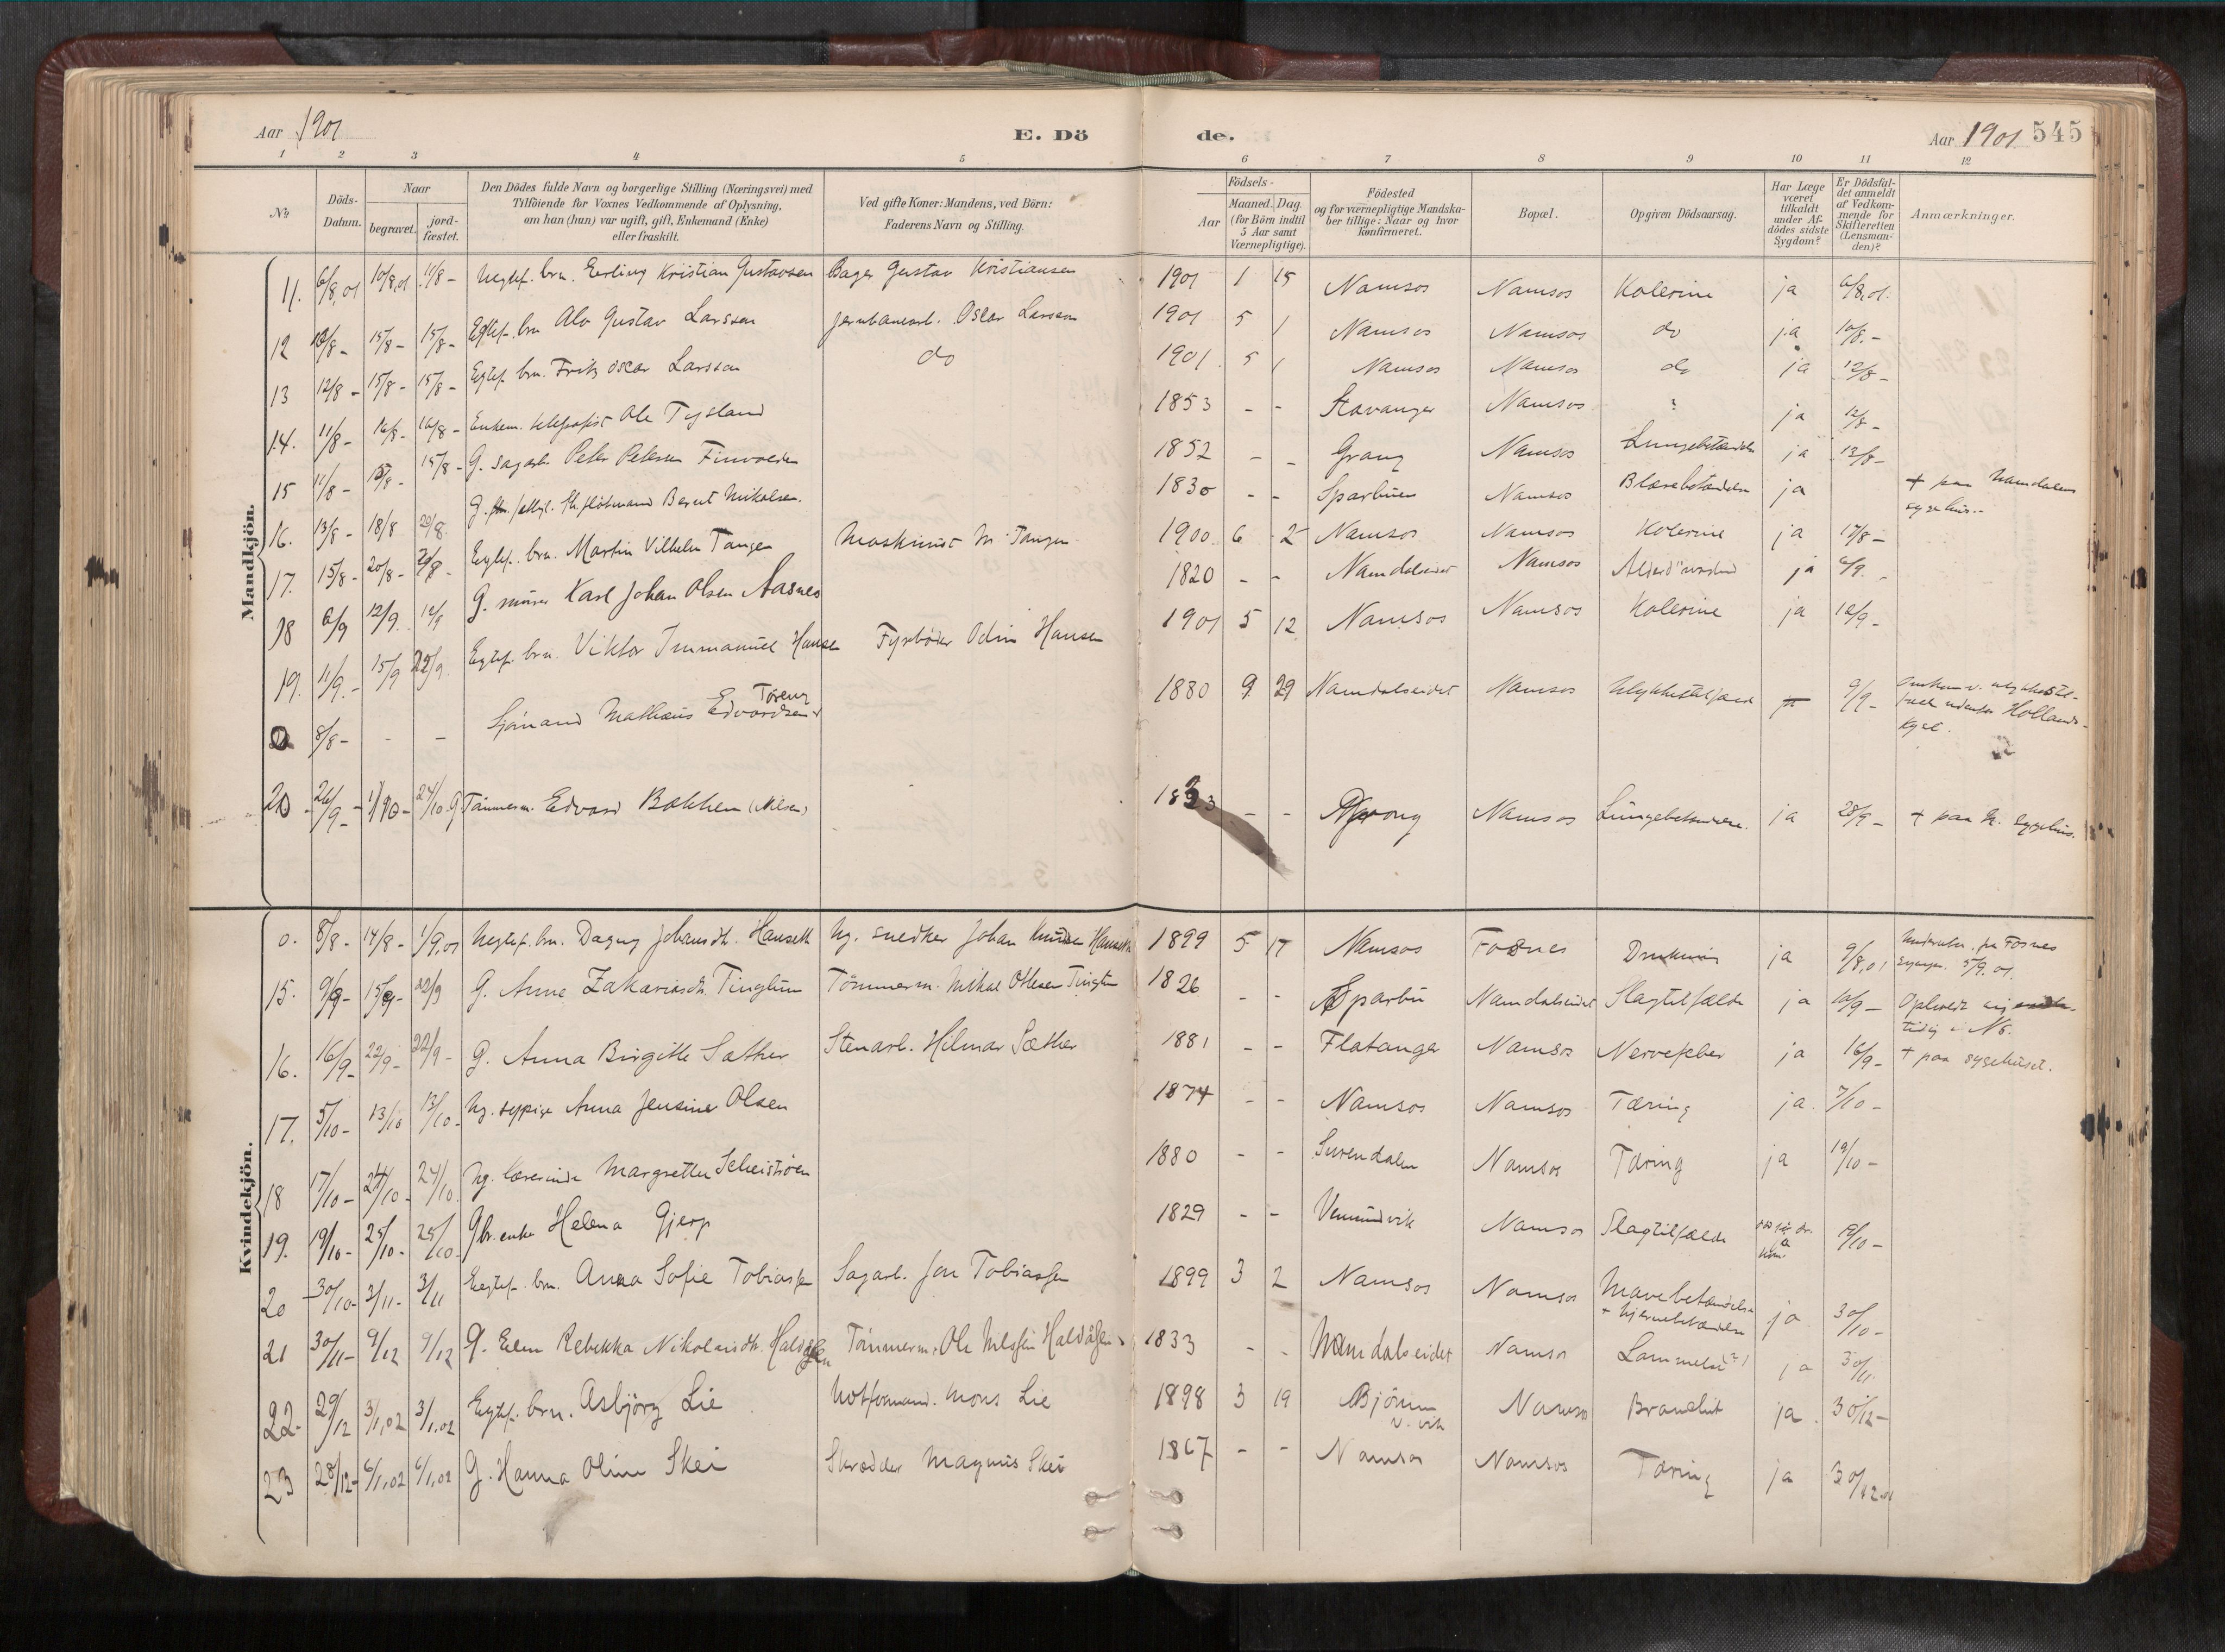 Aar 1901 E. Dö de. Aar 1901 545
1 2 3 4 5 6 7 8 9 10 11 12
No
Döds-Datum.
Naar begravet. jordfæstet.
Den Dödes fulde Navn og borgerlige Stilling (Næringsvei) med
Tilföiende for Voxnes Vedkommende af Oplysning,
om han (hun) var ugift, gift, Enkemand (Enke)
eller fraskilt.
Ved gifte Koner: Mandens, ved Börn:
Faderens Navn og Stilling.
Födsels-
Aar Maaned. Dag.
(for Börn indtil
5 Aar samt
Værnepligtige).
Födested
og for værnepligtige Mandska-
ber tillige: Naar og hvor
konfirmeret.
Bopæl.
Opgiven Dödsaarsag.
Har Læge
været
tilkaldt
under Af-
dödes sidste
Sygdom?
Er Dödsfal-
det anmeldt
af Vedkom-
mende for
Skifteretten
(Lensman-
den)?
Anmærkninger.
Mandkjön.
11. 6/8,01 10/8,01 11/8 - Uegtef. brn. Erling Kristian Gustavsen Bager Gustav Kristiansen 1901 1 15 Namsos Namsos Kolerine ja 6/8,01.
12 10/8 - 15/8 - 15/8 - Egtef. brn Alv Gustav Larssen jernbanearb. Oscar Larssen 1901 5 1 Namsos Namsos do ja 10/8.-
13 12/8 - 15/8 - 15/8 - Egtef. brn. Fritz Oscar Larssen do 1901. 5 1 Namsos Namsos do ja 12/8 -
14. 11/8 - 16/8 - 16/8 - Enkem. telegrafist Ole Tysland 1853 - - Stavanger Namsos ? ja 12/8 -
15 11/8 - 15/8 - 15/8 - G. sagarb. Peter Petersen Finvolden 1852 - - Grong Namsos Lungebetændelse ja 13/8 -
16. 13/8 - 18/8 20/8. G. Berut Mikalsen. 1830 - - Sparbuen Namsos Blærebetændelse ja + paa Namdalens
sygehus.-
17. 15/8 - 20/8 - Egtef. brn. Martin Vilhelm Tangen Maskinist M. Tangen 1900 6 2 Namsos Namsos Kolerine ja 17/8 -
18 6/9 12/9. 12/9 G. murer Karl Johan Olsen Aasnes 1820 - - Namdalseidet Namsos ja 6/9. -
19. 11/9. - 15/9 22/9. Egtef. brn. Viktor Immanuel Hansen Fyrböder Odin Hansen 1901 5 12 Namsos Namsos Kolerine ja 12/9 -
0 8/8 - - - Sjömand Mathæus Edvardsen Töreng 1880 9. 29 Namdalseidet Namsos Ulykkestilfæld 9/9 - omkom v. ulykkestil-
fæld udenfor Hollands-
kyst.
20 - 26/9 - 1/10 - 24/10. G. Tömmerm. Edvard Bakken (Nilsen) 18 3 - - Grong Namsos Lungebetændelse. ja 28/9 - + paa N. sygehus.
Kvindekjön.
0. 8/8 - 14/8 - 1/9,01 Uegtef. brn. Dagny Johansdt. Hanseth Ug. snedker Johan Knudsen Hanseth 1899 5 17 Namsos Fosnes ja 9/8,01 Fosnes
5/9.01.
15. 9/9 - 15/9 - 22/9 G. Anne Zakariasdt. Tinglum Tömmerm. Mikal Ottesen Tinglum 1826 - - Sparbu Namdalseidet Slagtilfælde ja 10/9 - Opholdt sig
tidig i Ns.
16. 16/9 - 22/9 - 22/9 - G. Anna Birgitte Sæther Stenarb. Hilmar Sæther 1881 - - Flatanger Namsos Nervefeber ja 16/9 - + paa sygehuset.
17. 5/10 - 13/10 13/10 - Ug. sypige Anna Jensine Olsen 1874 - - Namsos Namsos Tæring ja. 7/10 -
18 17/10 - 24/10 - 24/10. Ug. lærerinde Margrethe Scheiströen 1880 - - Surendalen Namsos Tæring ja 19/10 -
19. 19/10 - 25/10 - 25/10. Gbr. enke Helena Gjerp 1829 - - Vemundvik Namsos Slagtilfælde 19/10 -
20 30/10 - 3/11 - 3/11 Egtef. brn. Anna Sofie Tobiassen Sagarb. Jon Tobiassen 1899 3 2 Namsos Namsos Mavebetændelse
+ hjernebetændelse ja 30/10 -
21 30/11 - 9/12 9/12 G. Elen Rebekka Nikolaisdt. Haldaasen Tömmerm. Ole Nilssen Haldaasen 1833 - - Namdalseidet Namsos Lammelse (?) ja 30/11
22 - 29/12 3/1,02 3/1,02 Egtef. brn. Asbjörg Lie Notformand. Mons Lie 1898 3 19 Björum
V. vik Namsos Brandsut ja 30/12 -
23 28/12 - 6/1,02 6/1,02 G. Hanna Oline Skei Skrædder Magnus Skei 1867 - - Namsos Namsos Tæring ja 30/12 01